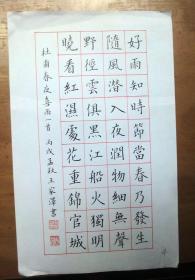 好雨知時節當春乃發生
隨風潛入夜潤物細無聲
野徑雲俱黑江船火獨明
曉看紅濕處花重錦官城
杜甫春夜喜雨一首 丙戌孟秋王家澤書